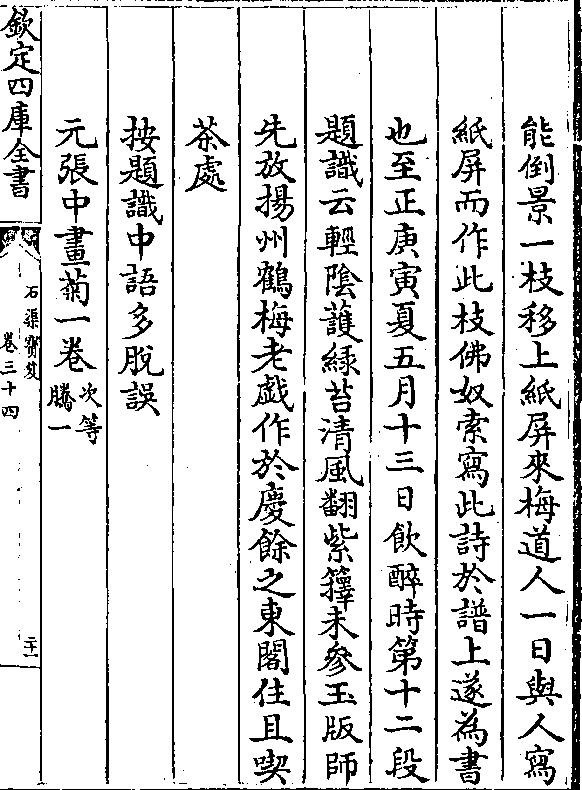 能倒景一枝移上紙屏來梅道人一日與人寫
紙屏而作此枝佛奴索寫此詩於譜上遂為書
也至正庚寅夏五月十三日飲醉時第十二段
題識云輕陰護緑苔清風翻紫籜未參玉版師
先放揚州鶴梅老戯作於慶餘之東閣住且喫
茶處
按題識中語多脫誤
元張中畫菊一卷次等騰一
欽定四庫全書
石渠寶笈
卷三十四
二十一